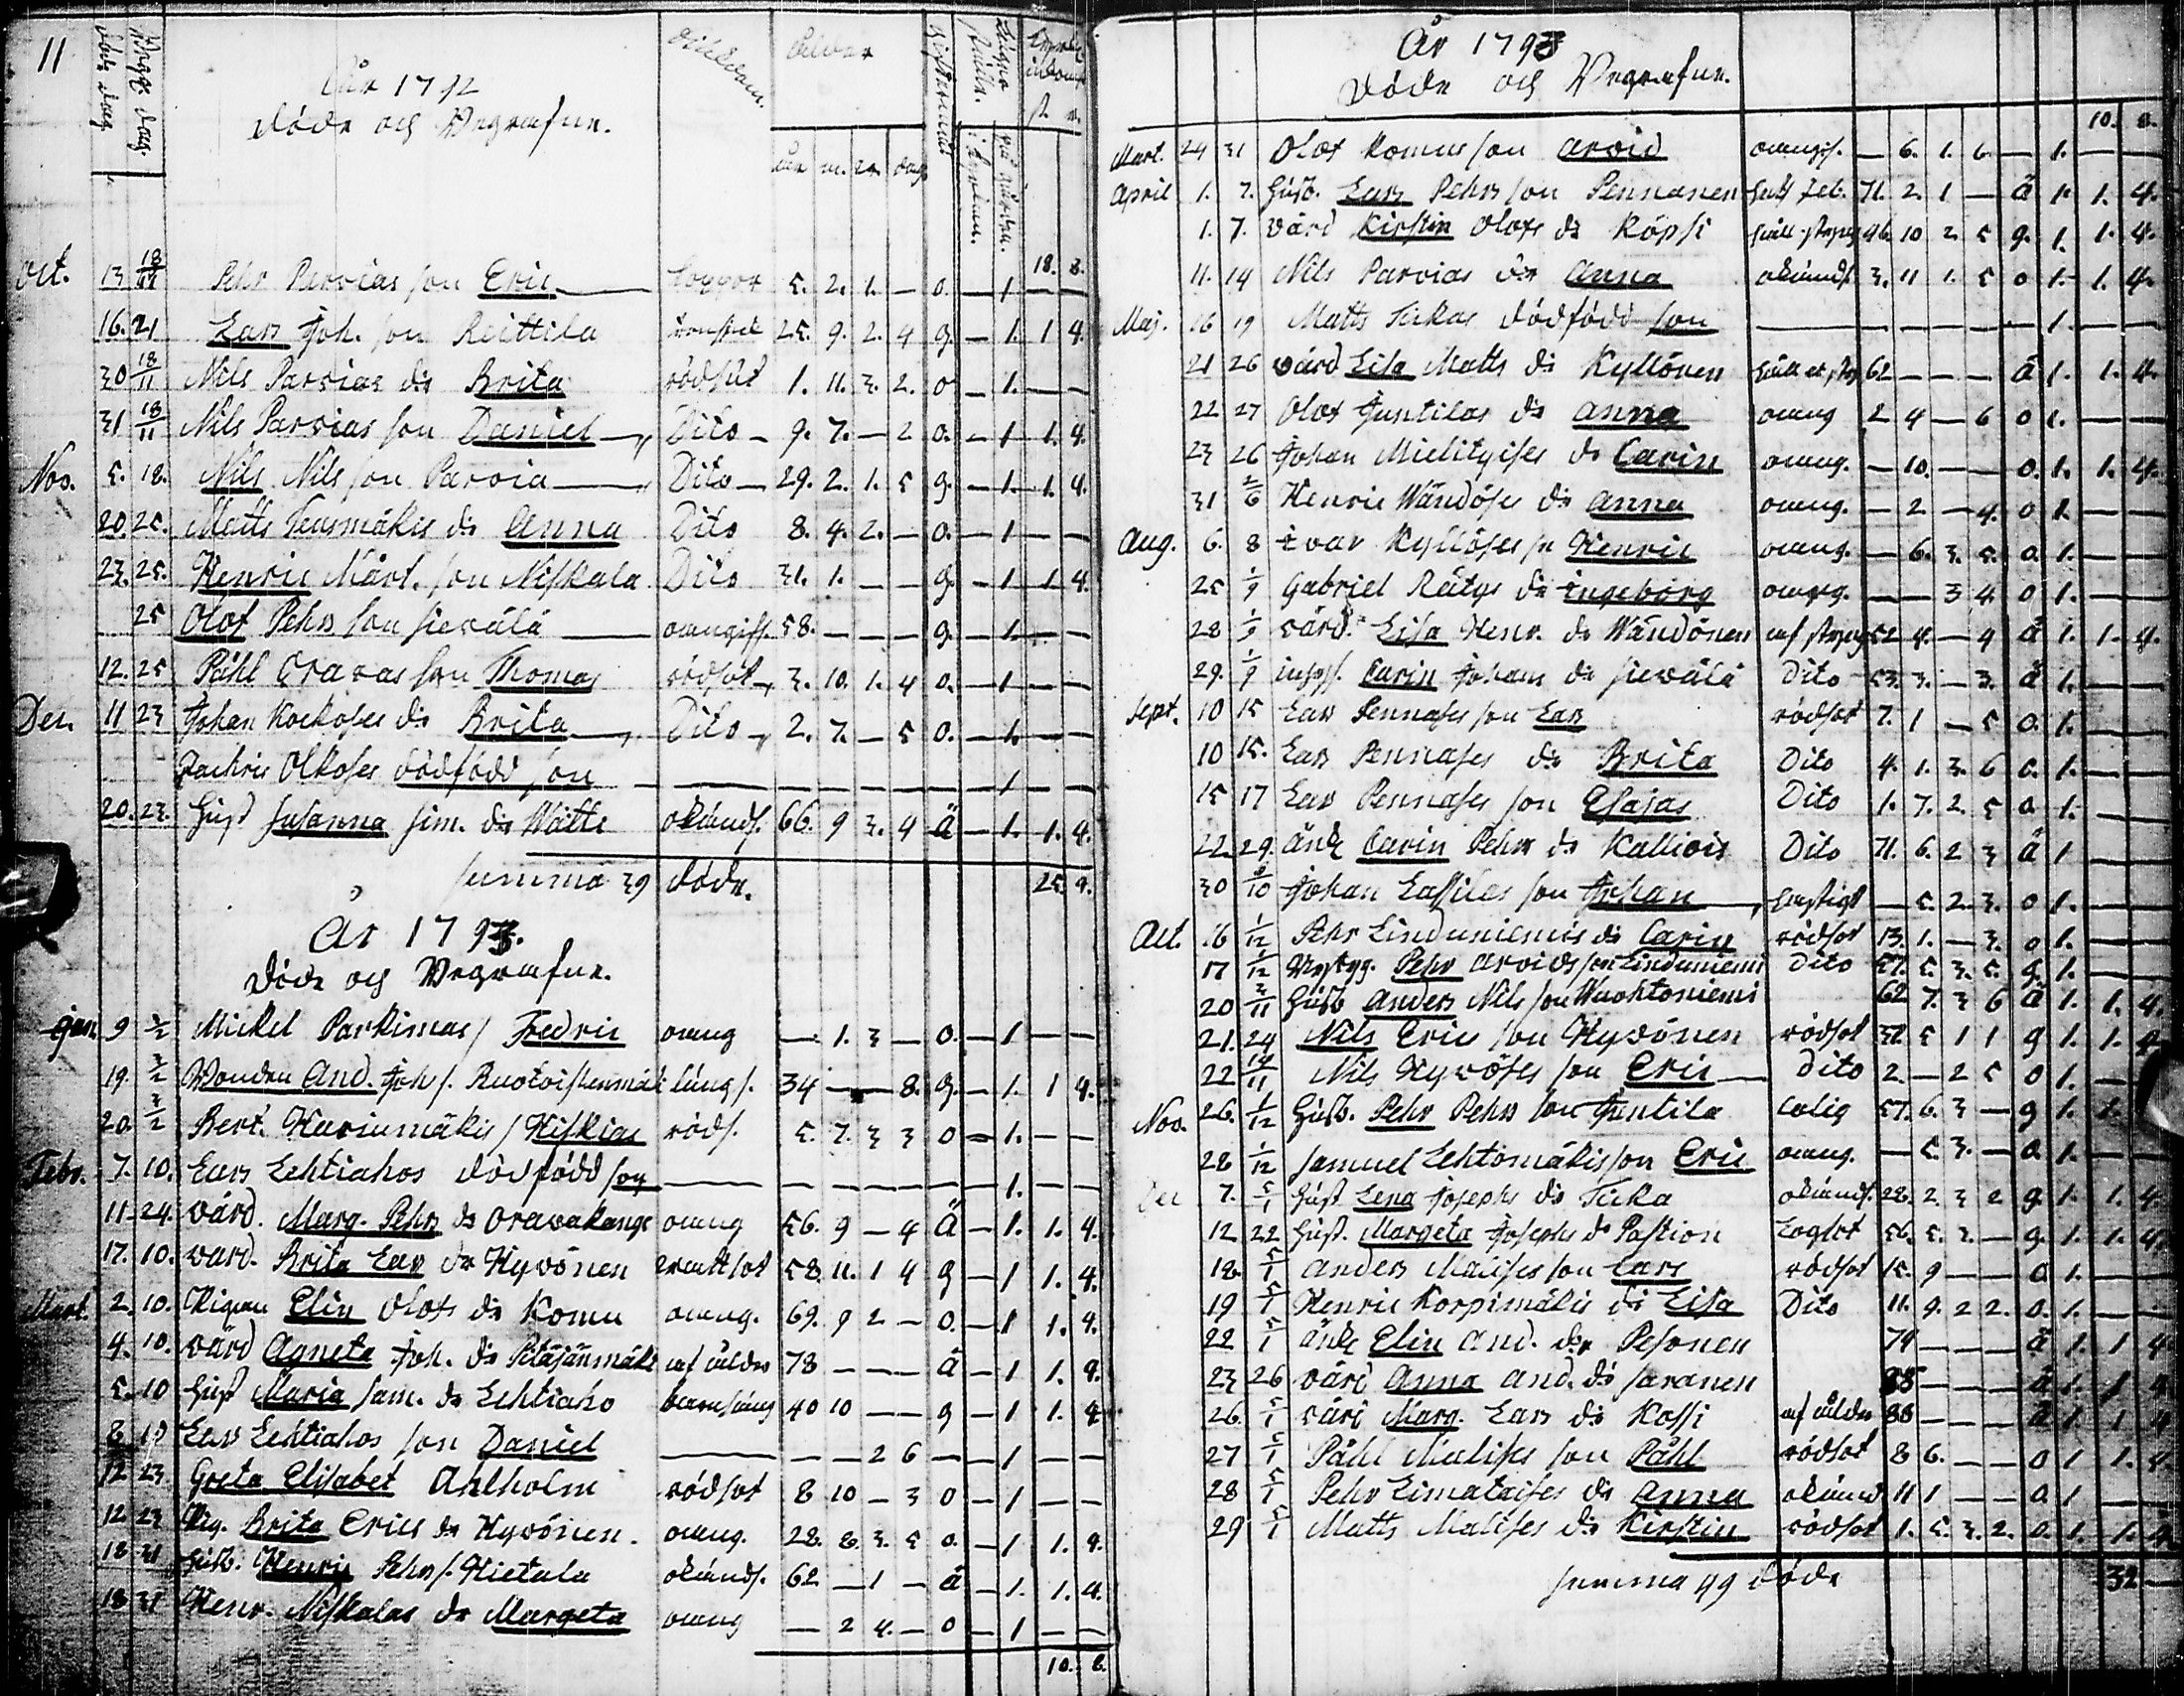 11
Döde dag
Begr. dag.
År 1792
Döde och Begrafne.
Siukdom.
Ålder
åar m. v. dag
18. 8.
Oct. 13 18/11 Pehr Parvias son Eric Koppor 5. 2. 1. — 0. — 1 — —
16. 21 Lars Joh. son Reittila 25. 9. 2. 4 g. — 1. 1 4.
30 18/11 Nils Parvias dr Brita rödsot 1. 11. 3. 2. 0 — 1. — —
31 18/11 Nils Parvias son Daniel Dito 9. 7. — 2 0. — 1 1. 4.
Nov. 5. 18. Nils Nils son Parvia Dito 29. 2. 1. 5 g. — 1. 1. 4.
20. 25. Matts Tensmäkis dr Anna Dito 8. 4. 2. — 0. — 1 — —
23. 25. Henric Mårt. son Niskala Dito 31. 1. — — g. — 1 1 4.
25 Olof Pehrs son Sieväla omngifs. 58. — — — g. — 1. — —
12. 25 Påhl Oravas son Thomas rödsot 3. 10. 1. 4 0. — 1 — —
Dec. 11 23 Johan Kockoses dr Brita Dito 2. 7. — 5 0. — 1. — —
Zachris Olkoses dödfödd son — — — — — — 1 — —
20. 23. Hust Susanna Sim. dr Wätte okänds. 66. 9 3. 4 ä — 1. 1. 4.
Summa 39 döde. 25. 4.
År 1793.
Döde och Begrafne.
Jan. 9 3/2 Mickel Parkimas s Fredric omng — 1. 3 — 0. — 1 — —
19. 3/2 Bonden And. Joh s. Ruotoistenmäk lungs. 34 — — 8. g. — 1. 1 4.
20. 3/2 Bert. Harjumäkis s Hiskias röds. 5. 7. 3 3 0 — 1. — —
Febr. 7. 10. Lars Lehtiahos dödfödd son — — — — — — 1. — —
11. 24. värd. Marg. Pehrs dr Oravakange omng 56. 9 — 4 ä — 1. 1. 4.
17. 10. värd. Brita Lars dr Hyvönen wattsot 58. 11. 1 4 g — 1 1. 4.
Mart. 2. 10. Pigan Elin Olofs dr Komu omng. 69. 9 2 — 0. — 1 1. 4.
4. 10. värd Agneta Joh. dr Petäjänmäki af ålder 78 — — — ä — 1 1. 4.
5. 10 Hust Maria Sam. dr Lehtiaho barnsäng 40 10 — — g — 1 1. 4
8 10 Lars Lehtiahos son Daniel — — — 2 6 — — 1 — —
12 23 Greta Elisabet Ahlholm rödsot 8 10 — 3 0 — 1 — —
12 23 Pig. Brita Erics dr Hyvönen. omng. 28. 8. 3. 5 0. — 1 1. 4.
18 31 Husb. Henric Pehrs s. Hietala okänds. 62 — 1 — ä — 1. 1. 4.
18 31 Henr. Niskalas dr Margeta omng — 2 4. — 0 — 1 — —
10. 8.
År 1793
Döde och Begrafne.
10. 8.
Mart. 24 31 Olof Komus son Arvid omngifs. — 6. 1. 6. — 1. — —
April 1. 7. Husb. Lars Pehrs son Pennanen 71. 2. 1 — ä 1. 1. 4.
1. 7. värd Kirstin Olofs dr Köpsi 46. 10 2. 5 g. 1. 1. 4.
11. 14 Nils Parvias dr Anna okänds. 3. 11 1. 5 0 1. 1. 4.
Maj. 16 19 Matts Tickas dödfödd son — — — — — — 1. — —
21 26 värd Lisa Matts dr Kyllönen 62 — — — ä 1. 1. 4.
22 27 Olof Juntilas dr Anna omng 2 4 — 6 0 1. — —
23 26 Johan Mielityises dr Carin omng. — 10. — — 0. 1. 1. 4.
31 2/6 Henric Wändöses dr Anna omng. — 2 — 4. 0 1. — —
Aug. 6. 8 Ivar Kyllöses sn Henric omng. — 6. 3. 5. 0. 1. — —
25 1/9 Gabriel Rätys dr Ingeborg omng. — — 3 4. 0 1. — —
28 1/9 värd. Lisa Henr. dr Wändönen 52 4. — 4 ä 1. 1. 4.
29. 1/9 inhys. Carin Johans dr Sieväla Dito 53. 3. — 3. ä 1. — —
Sept. 10 15 Lars Pennases son Lars rödsot 7. 1 — 5 0. 1. — —
10 15. Lars Pennases dr Brita Dito 4. 1. 3. 6 0. 1. — —
15 17 Lars Pennases son Esajas Dito 1. 7. 2. 5 0. 1. — —
22. 29. änk Carin Pehrs dr Kallioin Dito 71. 6. 2 3 ä 1 — —
30 8/10 Johan Lassilas son Johan hastigt — 5. 2. 3. 0 1. — —
Oct. 16 1/12 Pehr Linduniemis dr Carin rödsot 13. 1. — 3. 0 1. — —
17 1/12 Pehr Arvids son Linduniemi Dito 57. 5. 3. 5. g. 1. — —
20 3/11 Husb Anders Nils son Wuohtoniemi 62 7. 3 6 ä 1. 1. 4.
21. 24 Nils Erics son Hyvönen rödsot 32 5 1 1 g 1. 1. 4
22 14/11 Nils Hyvöses son Eric Dito 2. — 2 5 0 1. — —
Nov. 26. 1/12 Husb. Pehr Pehrs son Juntila colig 57. 6. 3 — g 1. 1.
28 1/12 Samuel Lehtomäkis son Eric omng. — 5 3. — 0. 1. — —
Dec 7. 5/1 Hust Lena Josephs dr Ticka okänds. 28. 2. 3 2 g. 1. 1. 4
12 22 Hust. Margeta Josephs dr Pastion 56. 5. 2. — g. 1. 1. 4.
18. 5/1 Anders Malises son Lars rödsot 15. 9 — — 0 1. — —
19 5/1 Henric Korpimäkis dr Lisa Dito 11. 9. 2 2. 0. 1. — —
22 5/1 änk Elin And. dr Pesonen 74 — — — ä 1. 1 4
23 26 värd Anna And. dr Saranen 88 — — — ä 1. 1 4
26. 5/1 värd Marg. Lars dr Kossi af ålder 88 — — — ä 1. 1 4
27 5/1 Påhl Malises son Påhl rödsot 8 6. — — 0 1 1. 4
28 5/1 Pehr Limataises dr Anna okänd 11 1 — — 0 1 — —
29 5/1 Matts Malises dr Kirstin rödsot 1. 5. 3. 2. 0. 1. 1. 4
Summa 49 döde 32 —